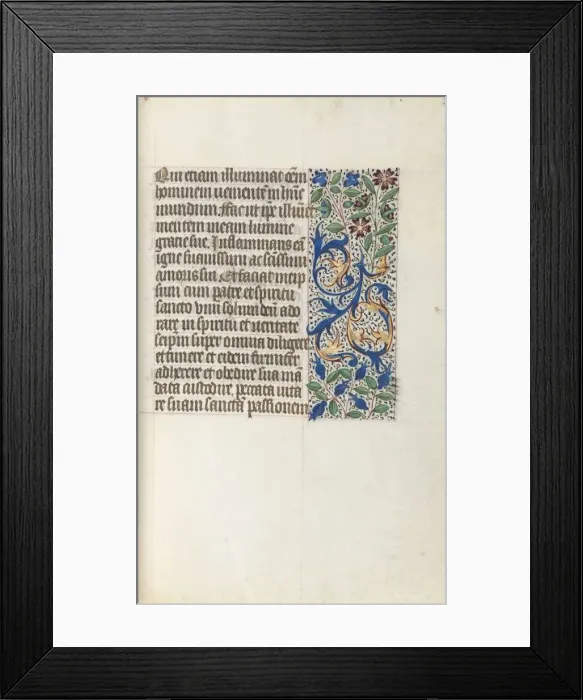 Qui etiam illuminat oēm
hominem uenientē in hūc
mundum. Fac ut ip̄e illumīet
mentem meam lumine
gratie sue. Inflammans eā
igne suauissimi ac sc̄issimi
amoris sui. Et faciat me ip
sum cum patre et spiritu
sancto vnū solum deū ado
rare in spiritu et veritate
seipm̄ super omnia diligere
et timere et eidem firmiter
adherere et obedire sua mā
data custodire, peccata uita
re suam sanctā passionem